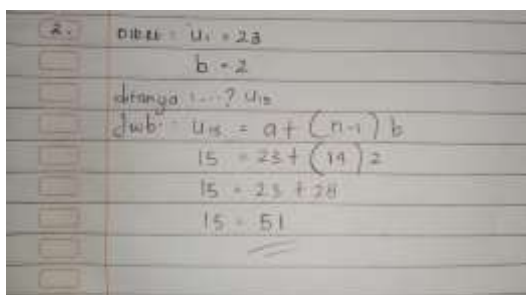 2. Diket : U₁ = 23
b = 2
ditanya : ....? U₁₅
Jwb : U₁₅ = a + (n-1) b
15 = 23 + (14) 2
15 = 23 + 28
15 = 51